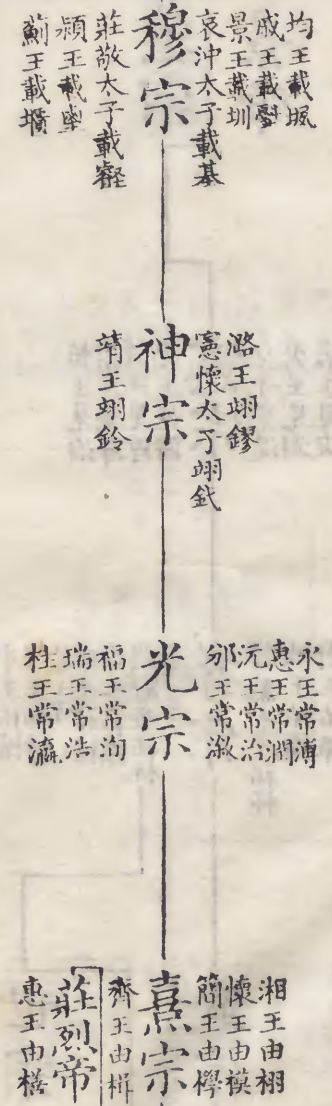 均王載㙉
戚王載
景王載圳
哀沖太子載基
穆宗
莊敬太子載壑
潁王載
薊王載𡐤
潞王翊鏐
憲懷太子翊釴
神宗
靖王翊鈴
永王常溥
惠王常潤
沅王常治
邠王常溆
光宗
福王常洵
瑞王常浩
桂王常瀛
湘王由栩
懷王由模
簡王由㰒
熹宗
齊王由楫
莊烈帝
惠王由橏